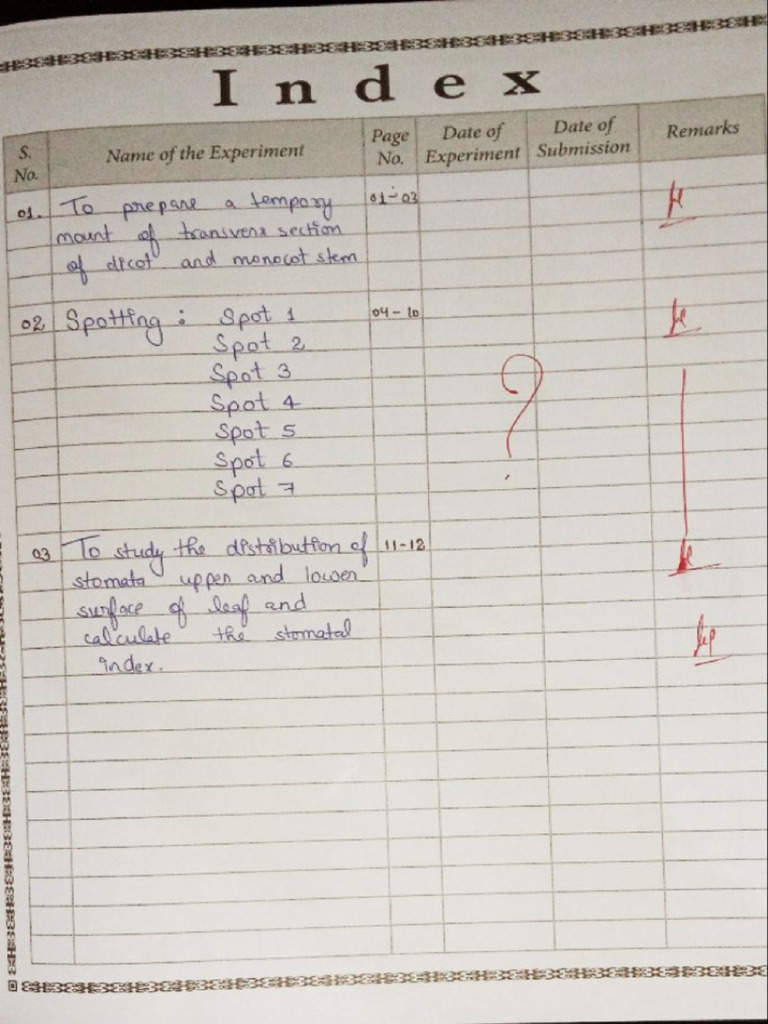 Index
S. No. Name of the Experiment Page No. Date of Experiment Date of Submission Remarks
01. To prepare a tempory 01-03
mount of transvers section
of dicot and monocot stem
02 Spotting : Spot 1 04-10
Spot 2
Spot 3
Spot 4
?
Spot 5
Spot 6
Spot 7
03 To study the distribution of 11-12
stomata upper and lower
surface of leaf and
calculate the stomatal
index.